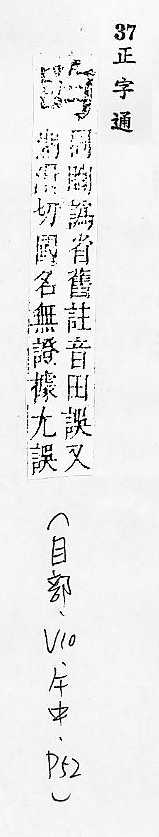 37 正字通
譌省舊註音田誤又
切國名無證據尤誤
(目部、V10、午中、P52)